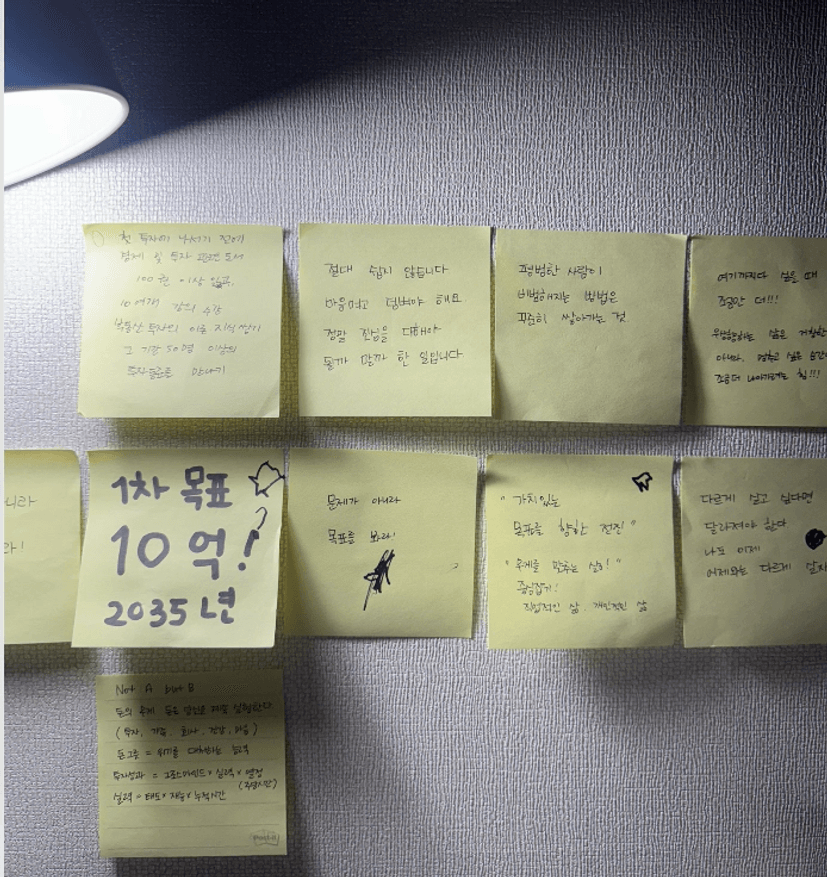 첫 투자에 나서기 전에
경제 및 투자 관련 도서
100권 이상 읽고,
10여개 강의 수강
부동산 투자의 이론 지식 쌓기
그 기간 50명 이상의
투자동료를 만나기
절대 쉽지 않습니다
마음먹고 덤벼야 해요
정말 진심을 다해야
될까 말까 한 일입니다
평범한 사람이
비범해지는 방법은
꾸준히 쌓아가는 것
여기까지다 싶을 때
조금만 더!!!
위대한 삶은 거창한
아니라, 멈추고 싶은 순간
조금 더 나아가려는 힘!!!
니라
라!
1차 목표
10억!
2035년
문제가 아니라
목표를 봐라!
"가치있는
목표를 향한 전진"
"무게를 맞추는 삶!"
중심잡기!
직업적인 삶, 개인적인 삶
다르게 살고 싶다면
달라져야 한다
나도 이제
어제와는 다르게 살자
Not A but B
돈의 무게
(투자, 가족, 회사, 건강, 마음)
돈그릇 = 위기를 대처하는 능력
투자성과 = 그로스마인드 × 실력 × 열정
(투입시간)
실력 = 태도 × 재능 × 누적시간